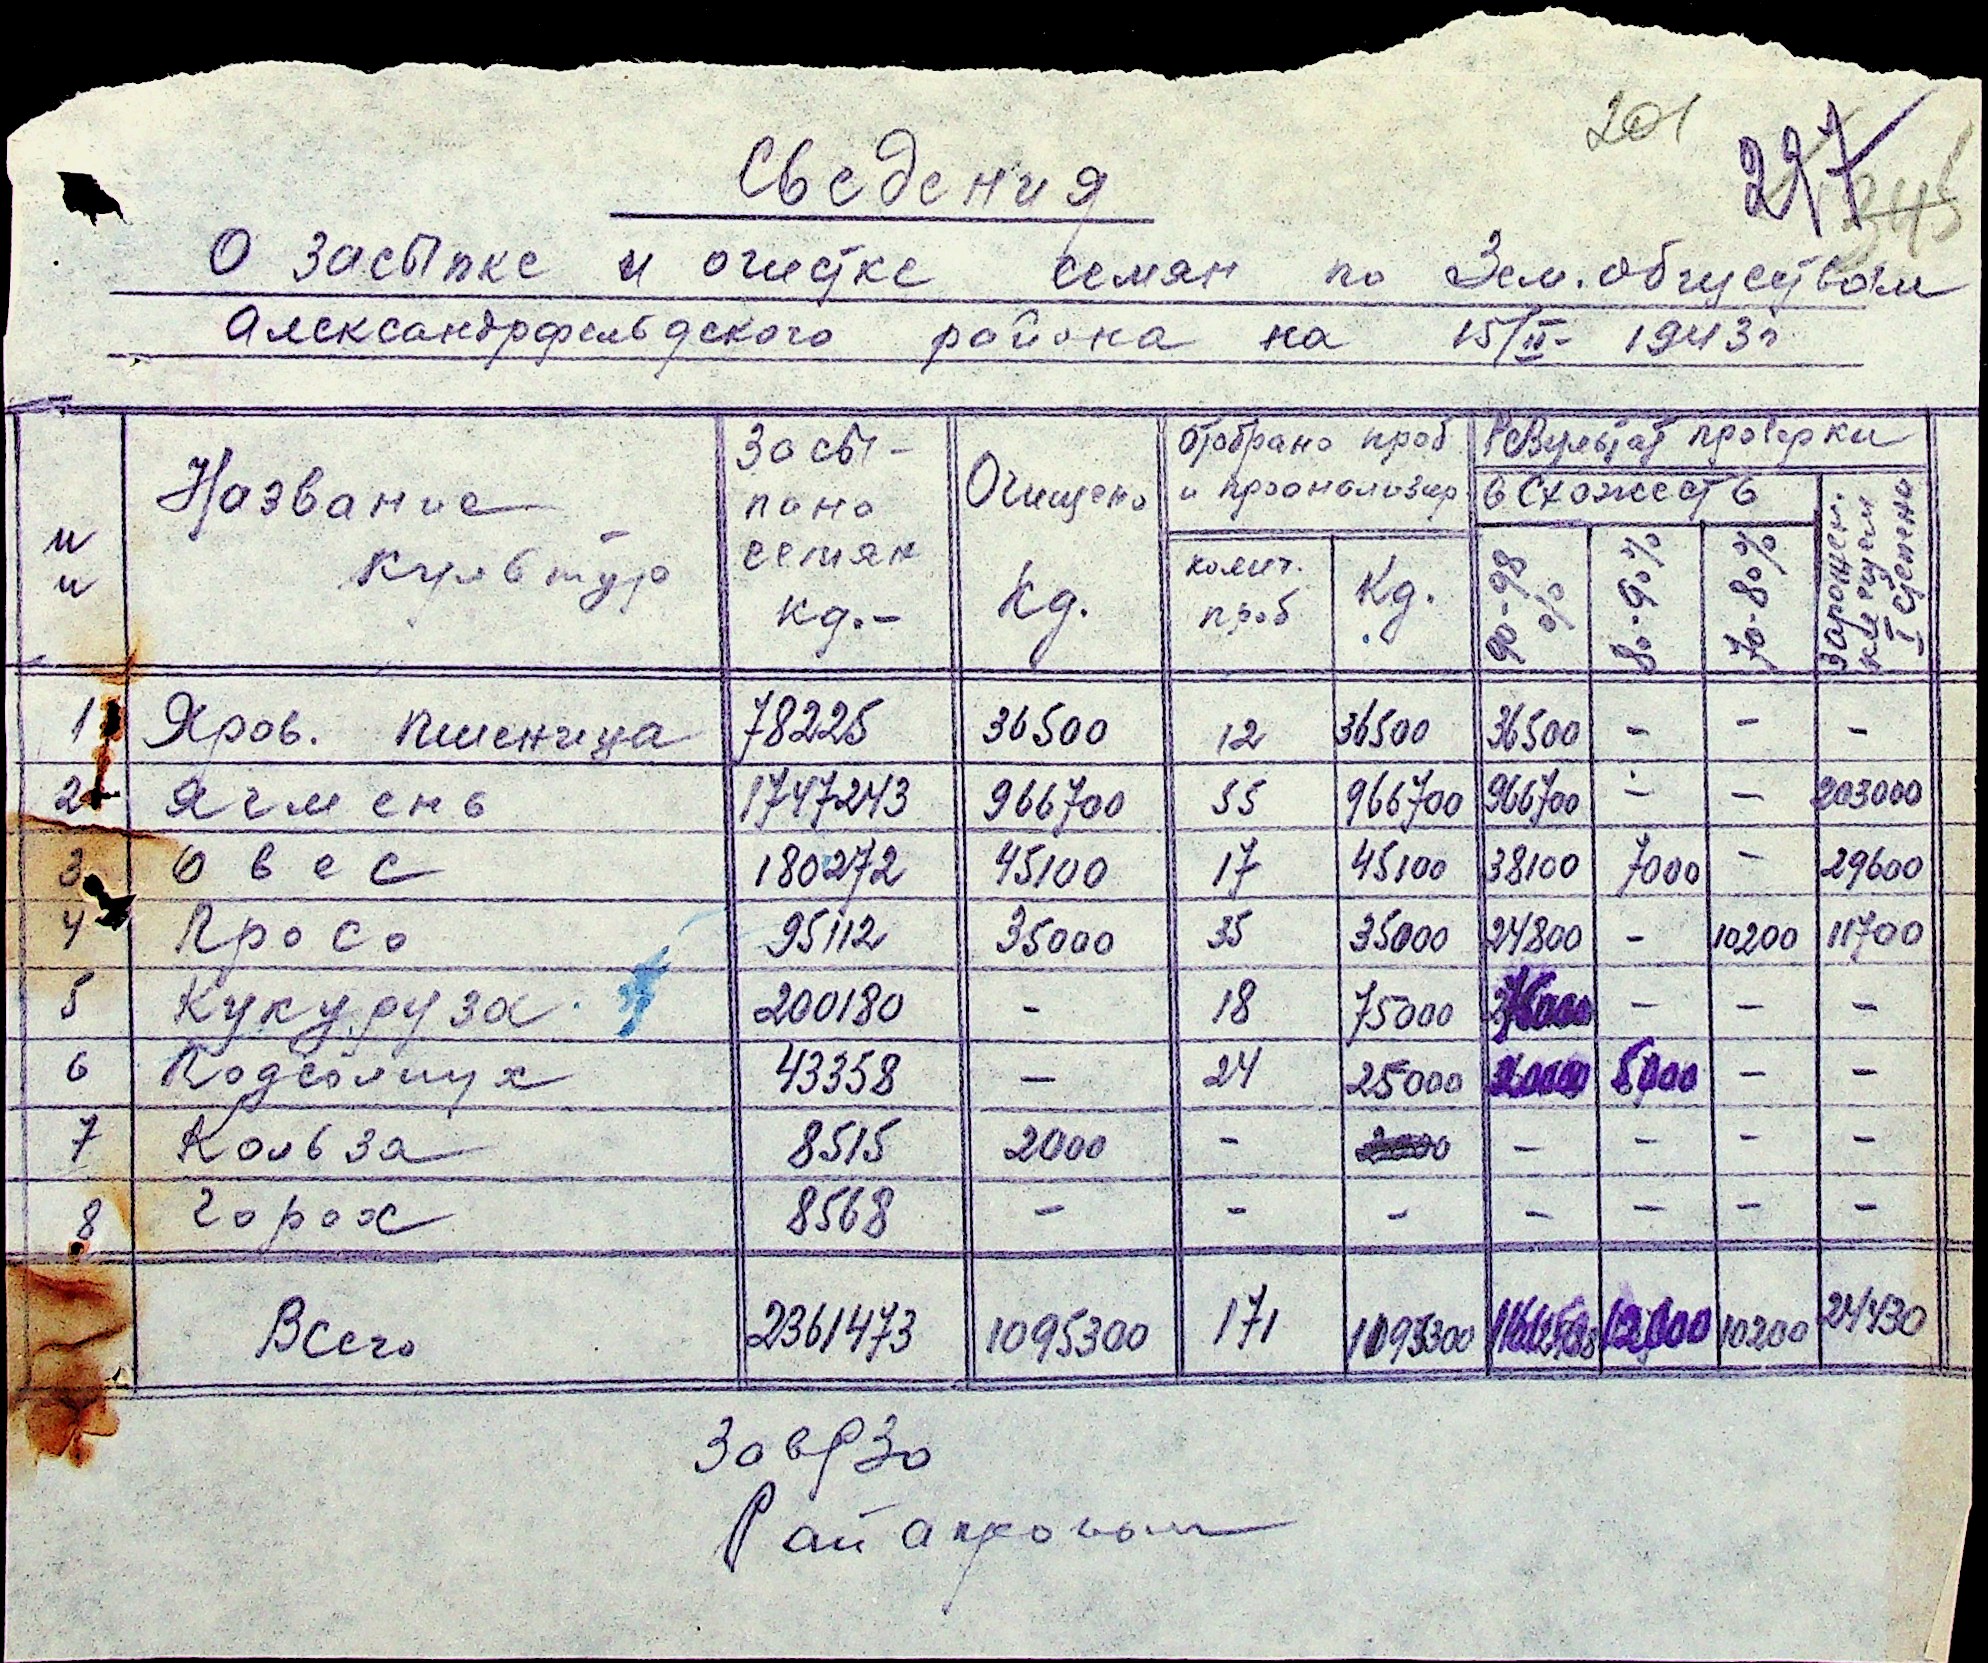 201
297
345
Сведения
О засыпке и очистке семян по Зем. обществам
Александрфельдского района на 15/II- 1943г
Название культур
Засыпано семян кг.-
Очищено кг.
Отобрано проб и проанализир.
колич. проб
Кг.
Результат проверки
всхожесть
90-98 %
80-90%
70-80%
заражен. клещем I степени
1 Яров. пшеница 78225 36500 12 36500 36500 - - -
2 Ячмень 1747243 966700 55 966700 966700 - - 203000
3 Овес 180272 45100 17 45100 38100 7000 - 29600
4 Просо 95112 35000 35 35000 24800 - 10200 11700
5 Кукуруза 200180 - 18 75000 - - -
6 Подсолнух 43358 - 24 25000 20000 5000 - -
7 Кольза 8515 2000 - - - - -
8 Горох 8568 - - - - - - -
Всего 2361473 1095300 171 1095300 12000 10200 24430
ЗавРЗО
Райагроном